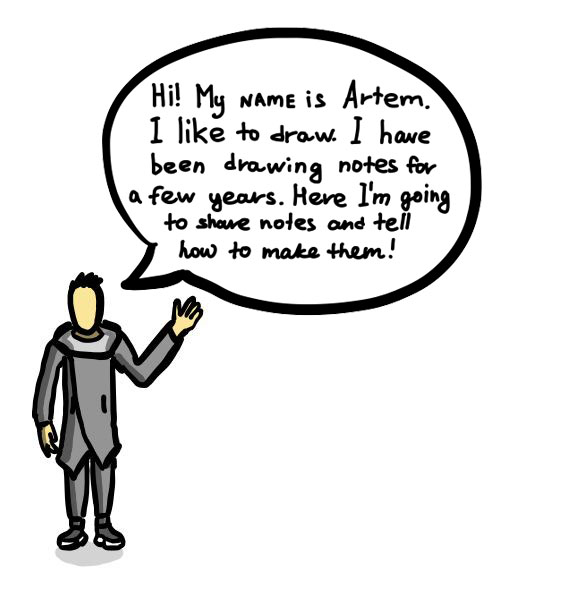 Hi! My NAME is Artem.
I like to draw. I have
been drawing notes for
a few years. Here I'm going
to share notes and tell
how to make them!